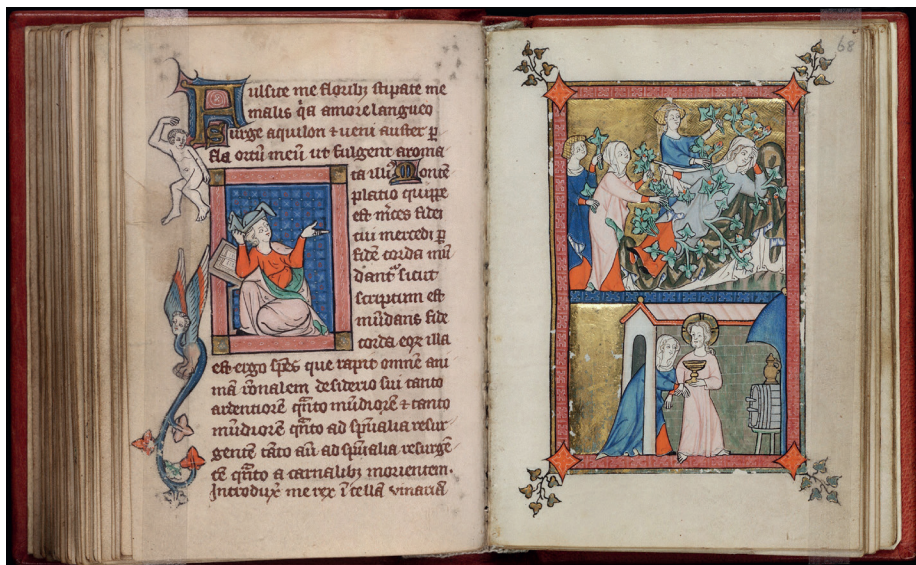 Fulcite me floribꝫ stipate me
malis q̄a amore langueo
Surge aquilon ⁊ ueni auster ꝑ
fla ortū meū ut fulgent aroma
ta illiꝰ Contē
platio quippe
est mͥces fidei
cui mercedi ꝑ
fidē corda mū
dant᷑ sicut
scriptum est
mūdans fide
corda eoꝝ illa
est ergo spēs que rapit omnē ani
mā rōnalem desiderio sui tanto
ardentiorē q̄nto mūdiorē ⁊ tanto
mūdiorē q̄nto ad spūalia resur
gentē tāto aū ad spūalia resurgē
tē q̄nto a carnalibꝫ morientem.
Introduxͭ me rex ī cellā vinariā
68